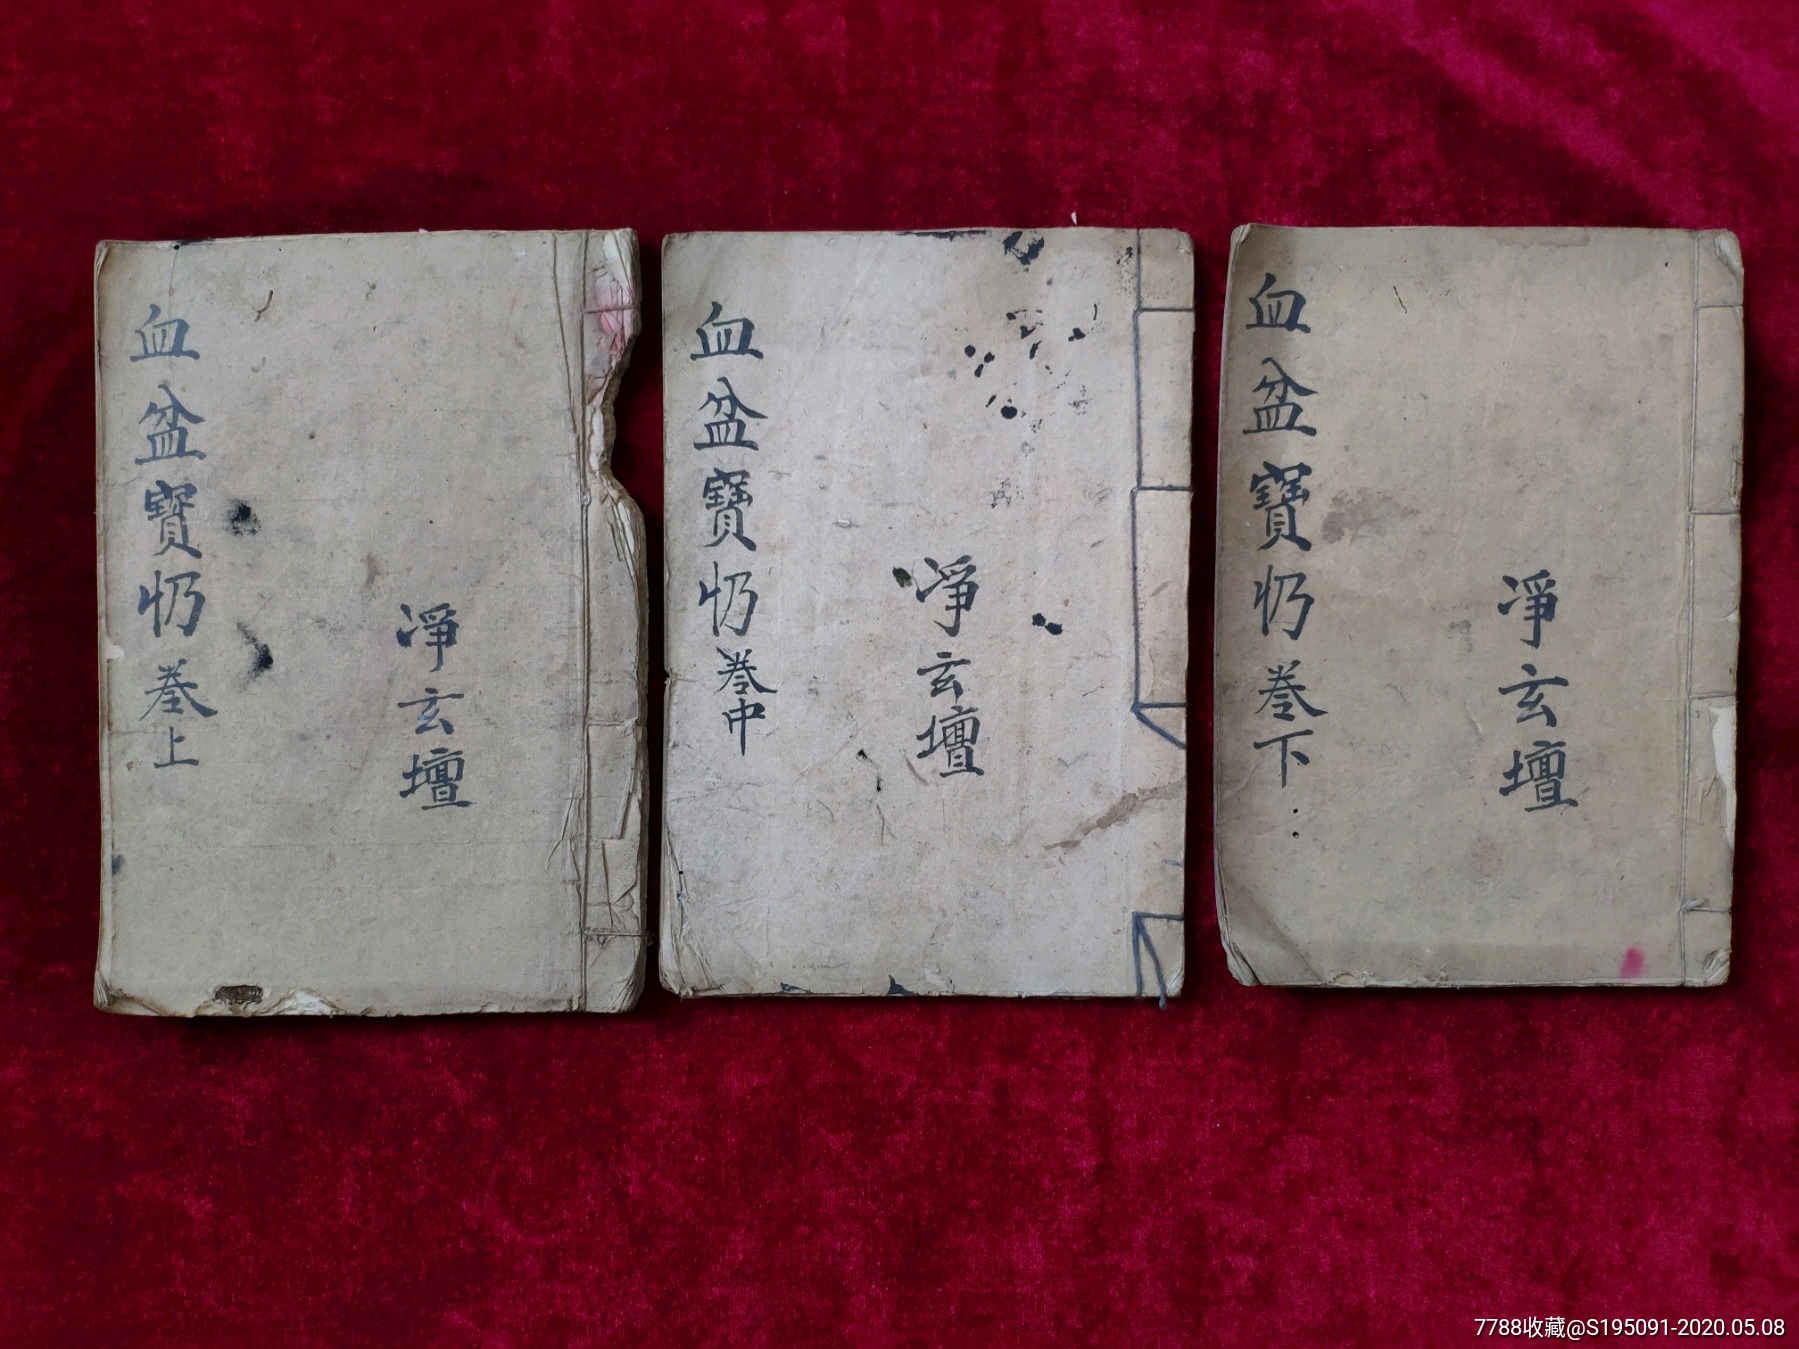 血盆寶卷上
凈玄壇
血盆寶卷中
凈玄壇
血盆寶卷下
凈玄壇
7788收藏@S195091-2020.05.08